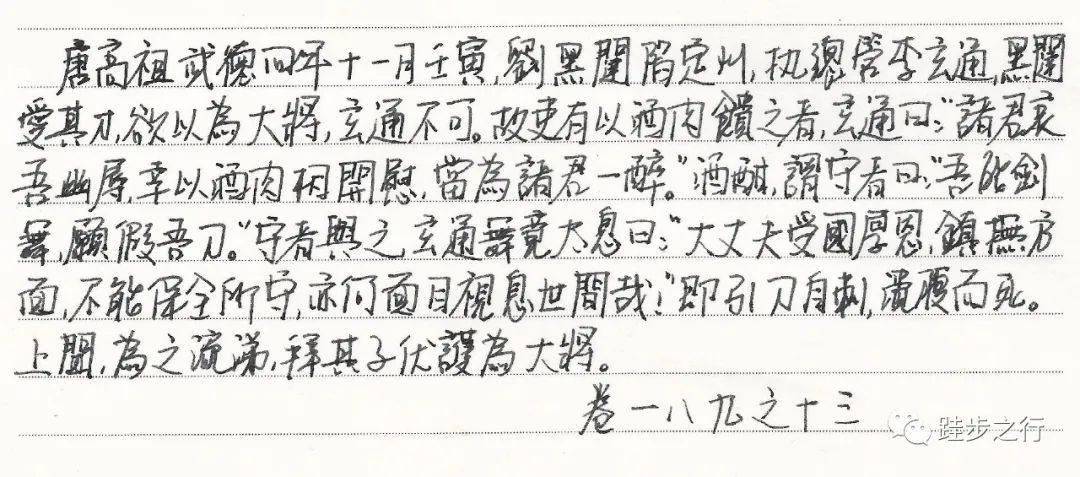 唐高祖武德四年十一月壬寅,劉黑闥陷定州,执總管李玄通,黑闥
愛其才,欲以為大將,玄通不可。故吏有以酒肉饋之者,玄通曰:“諸君哀
吾幽辱,幸以酒肉相開慰,當為諸君一醉。”酒酣,謂守者曰:“吾能劍
舞,願假吾刀。”守者與之,玄通舞竟,太息曰:“大丈夫受國厚恩,鎮撫方
面,不能保全所守,亦何面目視息世間哉!”即引刀自刺,潰腹而死。
上聞,為之流涕,拜其子伏護為大將。
卷一八九之十三
跬步之行